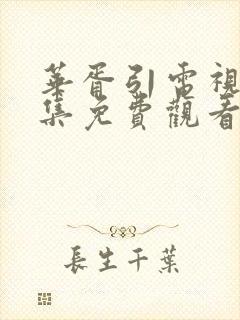 華胥引電視
集免費觀看
長生千葉